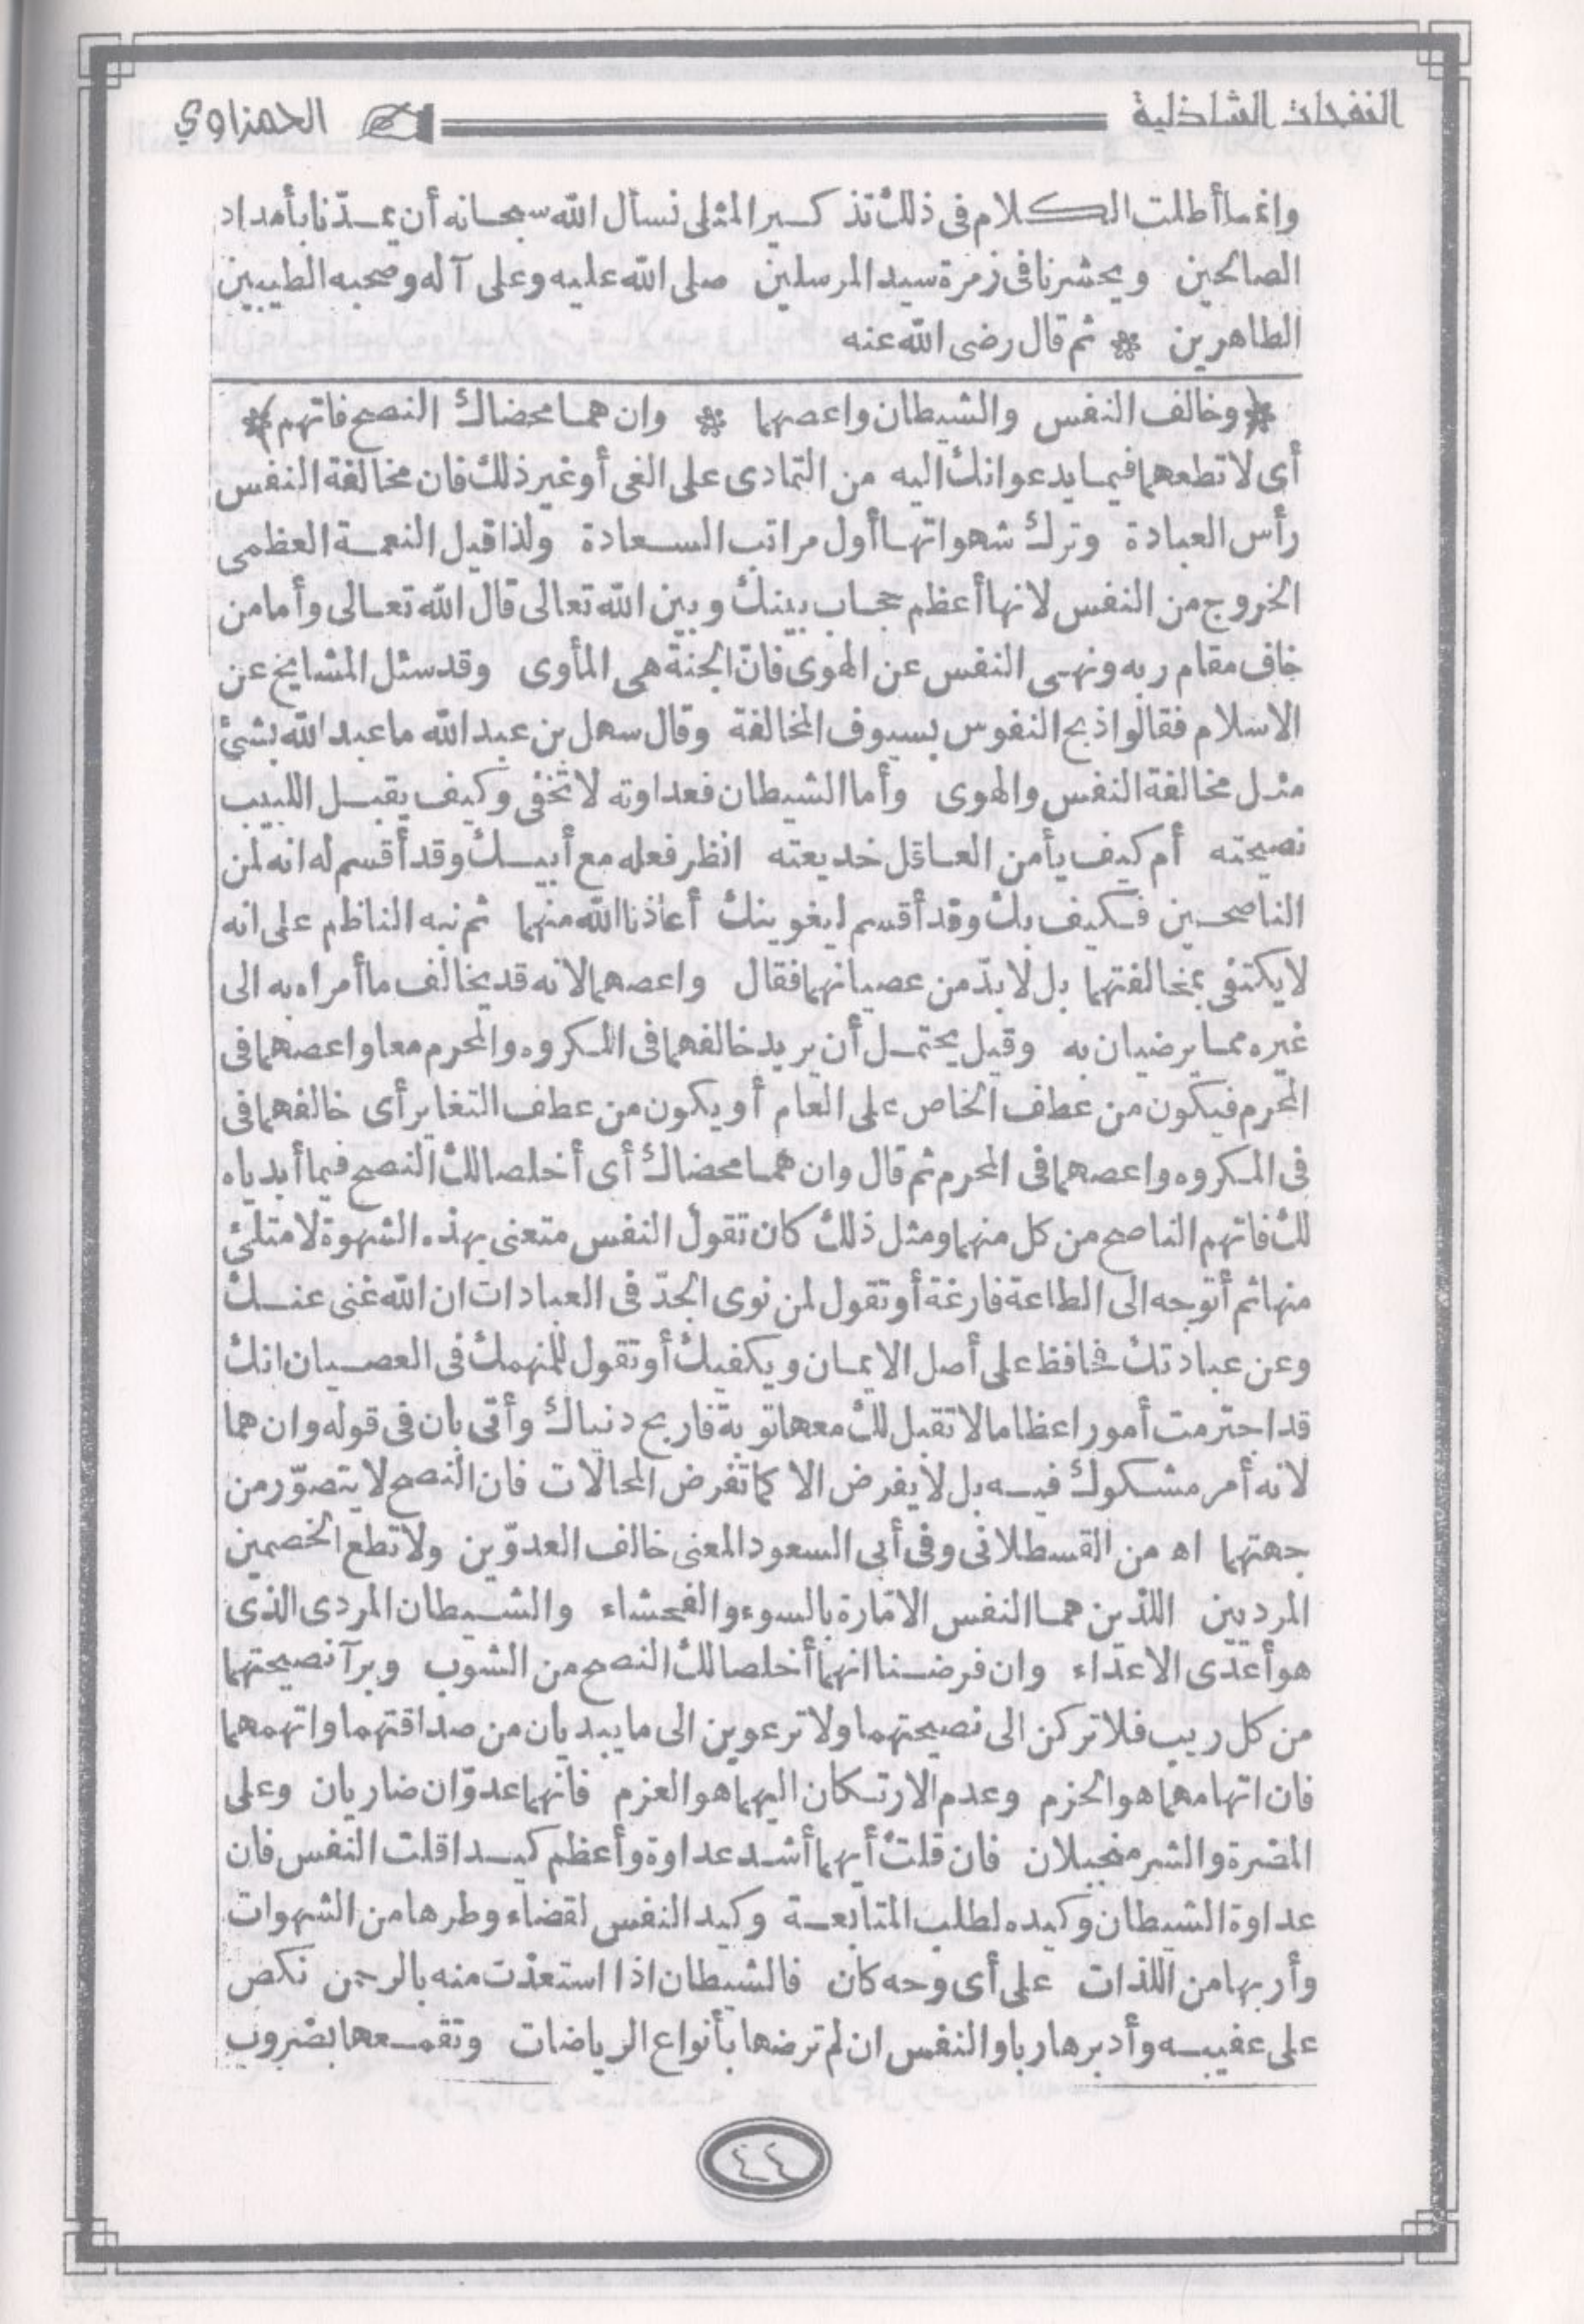 النفحات الشاذلية
الحمزاوي
وانما أطلت الكلام فى ذلك تذكير المثلى نسأل الله سبحانه أن يمدّنا بأمداد
الصالحين ويحشرنا فى زمرة سيد المرسلين صلى الله عليه وعلى آله وصحبه الطيبين
الطاهرين * ثم قال رضى الله عنه
*(وخالف النفس والشيطان واعصهما * وان هما محضاك النصح فاتهم)*
أى لا تطعهما فيما يدعوانك اليه من التمادى على الغى أو غير ذلك فان مخالفة النفس
رأس العبادة وترك شهواتها أول مراتب السعادة ولذا قيل النعمة العظمى
الخروج من النفس لانها أعظم حجاب بينك وبين الله تعالى قال الله تعالى وأما من
خاف مقام ربه ونهى النفس عن الهوى فانّ الجنة هى المأوى وقد سئل المشايخ عن
الاسلام فقالوا ذبح النفوس بسيوف المخالفة وقال سهل بن عبد الله ما عبد الله بشئ
مثل مخالفة النفس والهوى وأما الشيطان فعداوته لا تخفى وكيف يقبل اللبيب
نصيحته أم كيف يأمن العاقل خديعته انظر فعله مع أبيك وقد أقسم له انه لمن
الناصحين فكيف بك وقد أقسم ليغوينك أعاذنا الله منهما ثم نبه الناظم على انه
لا يكتفى بمخالفتهما بل لا بدّ من عصيانهما فقال واعصهما لانه قد يخالف ما أمراه به الى
غيره مما يرضيان به وقيل يحتمل أن يريد خالفهما فى المكروه والمحرم معا واعصهما فى
المحرم فيكون من عطف الخاص على العام أو يكون من عطف التغاير أى خالفهما فى
فى المكروه واعصهما فى المحرم ثم قال وان هما محضاك أى أخلصا لك النصح فيما أبدياه
لك فاتهم الناصح من كل منهما ومثل ذلك كان تقول النفس متعنى بهذه الشهوة لامتلئ
منها ثم أتوجه الى الطاعة فارغة أو تقول لمن نوى الجدّ فى العبادات ان الله غنى عنك
وعن عبادتك فحافظ على أصل الايمان ويكفيك أو تقول للمنهمك فى العصيان انك
قد اجترمت أمورا عظاما لا تقبل لك معها توبة فاربح دنياك وأتى بان فى قوله وان هما
لانه أمر مشكوك فيه بل لا يفرض الا كما تفرض المحالات فان النصح لا يتصوّر من
جهتهما اه من القسطلانى وفى أبى السعود المعنى خالف العدوّين ولا تطع الخصمين
المرديين اللذين هما النفس الامّارة بالسوء والفحشاء والشيطان المردى الذى
هو أعدى الاعداء وان فرضنا انهما أخلصا لك النصح من الشوب وبرآ نصيحتهما
من كل ريب فلا تركن الى نصيحتهما ولا ترعوين الى ما يبديان من صداقتهما واتهمهما
فان اتهامهما هو الحزم وعدم الارتكان اليهما هو العزم فانهما عدوّان ضاريان وعلى
المضرة والشر مجبلان فان قلت أيهما أشد عداوة وأعظم كيدا قلت النفس فان
عداوة الشيطان وكيده لطلب المتابعة وكيد النفس لقضاء وطرها من الشهوات
وأربها من اللذات على أى وجه كان فالشيطان اذا استعذت منه بالرحمن نكص
على عقبيه وأدبر هاربا والنفس ان لم ترضها بأنواع الرياضات وتقمعها بضروب
٤٤